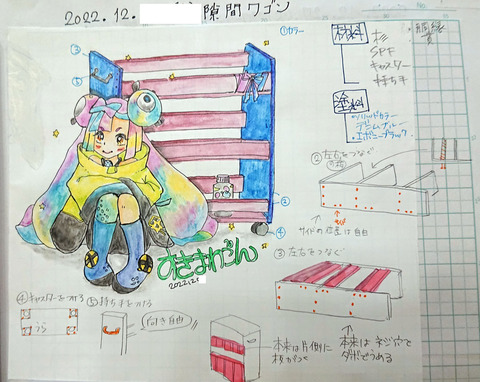 2022.12.
隙間ワゴン
①カラー
材料
SPF
キャスター
持ち手
塗料
ソリッドカラー
デニムブルー
エボニーブラック
②左右をつなぐ
サイドの位置は自由
③左右をつなぐ
③
⑤
②
④
すきまわごん
2022.12.
④キャスターをつける
うら
⑤持ち手をつける
向き自由
本来は片側に
板がつく
本来はネジ穴を
ダボでうめる